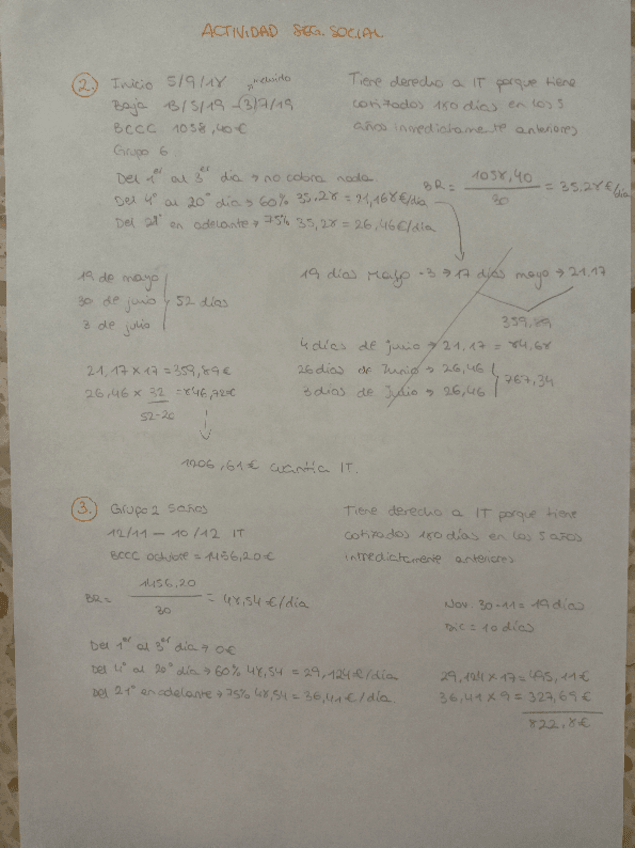 ACTIVIDAD SEG. SOCIAL
2. Inicio 5/9/18
Baja 13/5/19 - 3/7/19
BCCC 1058,40€
Grupo 6
Tiene derecho a IT porque tiene
cotizados 180 días en los 5
años inmediatamente anteriores
Del 1er al 3er día → no cobra nada.
Del 4º al 20º día → 60% 35,28 = 21,168€/día
Del 21º en adelante → 75% 35,28 = 26,46€/día
BR = 1058,40 / 30 = 35,28€/día
19 de mayo
30 de junio } 52 días
3 de julio
19 días mayo - 3 → 17 días mayo → 21.17
359,89
4 días de junio → 21,17 = 84,68
26 días de Junio → 26,46
3 días de Julio → 26,46 } 767,34
21,17 x 17 = 359,89€
26,46 x 32 = 846,72€
52-20
1206,61€ cuantía IT.
3. Grupo 2 5 años
12/11 - 10/12 IT
BCCC octubre = 1456,20€
Tiene derecho a IT porque tiene
cotizados 180 días en los 5 años
inmediatamente anteriores
BR = 1456,20 / 30 = 48,54€/día
Nov. 30-11 = 19 días
Dic = 10 días
Del 1er al 3er día → 0€
Del 4º al 20º día → 60% 48,54 = 29,124€/día
Del 21º en adelante → 75% 48,54 = 36,41€/día
29,124 x 17 = 495,11€
36,41 x 9 = 327,69€
822,8€